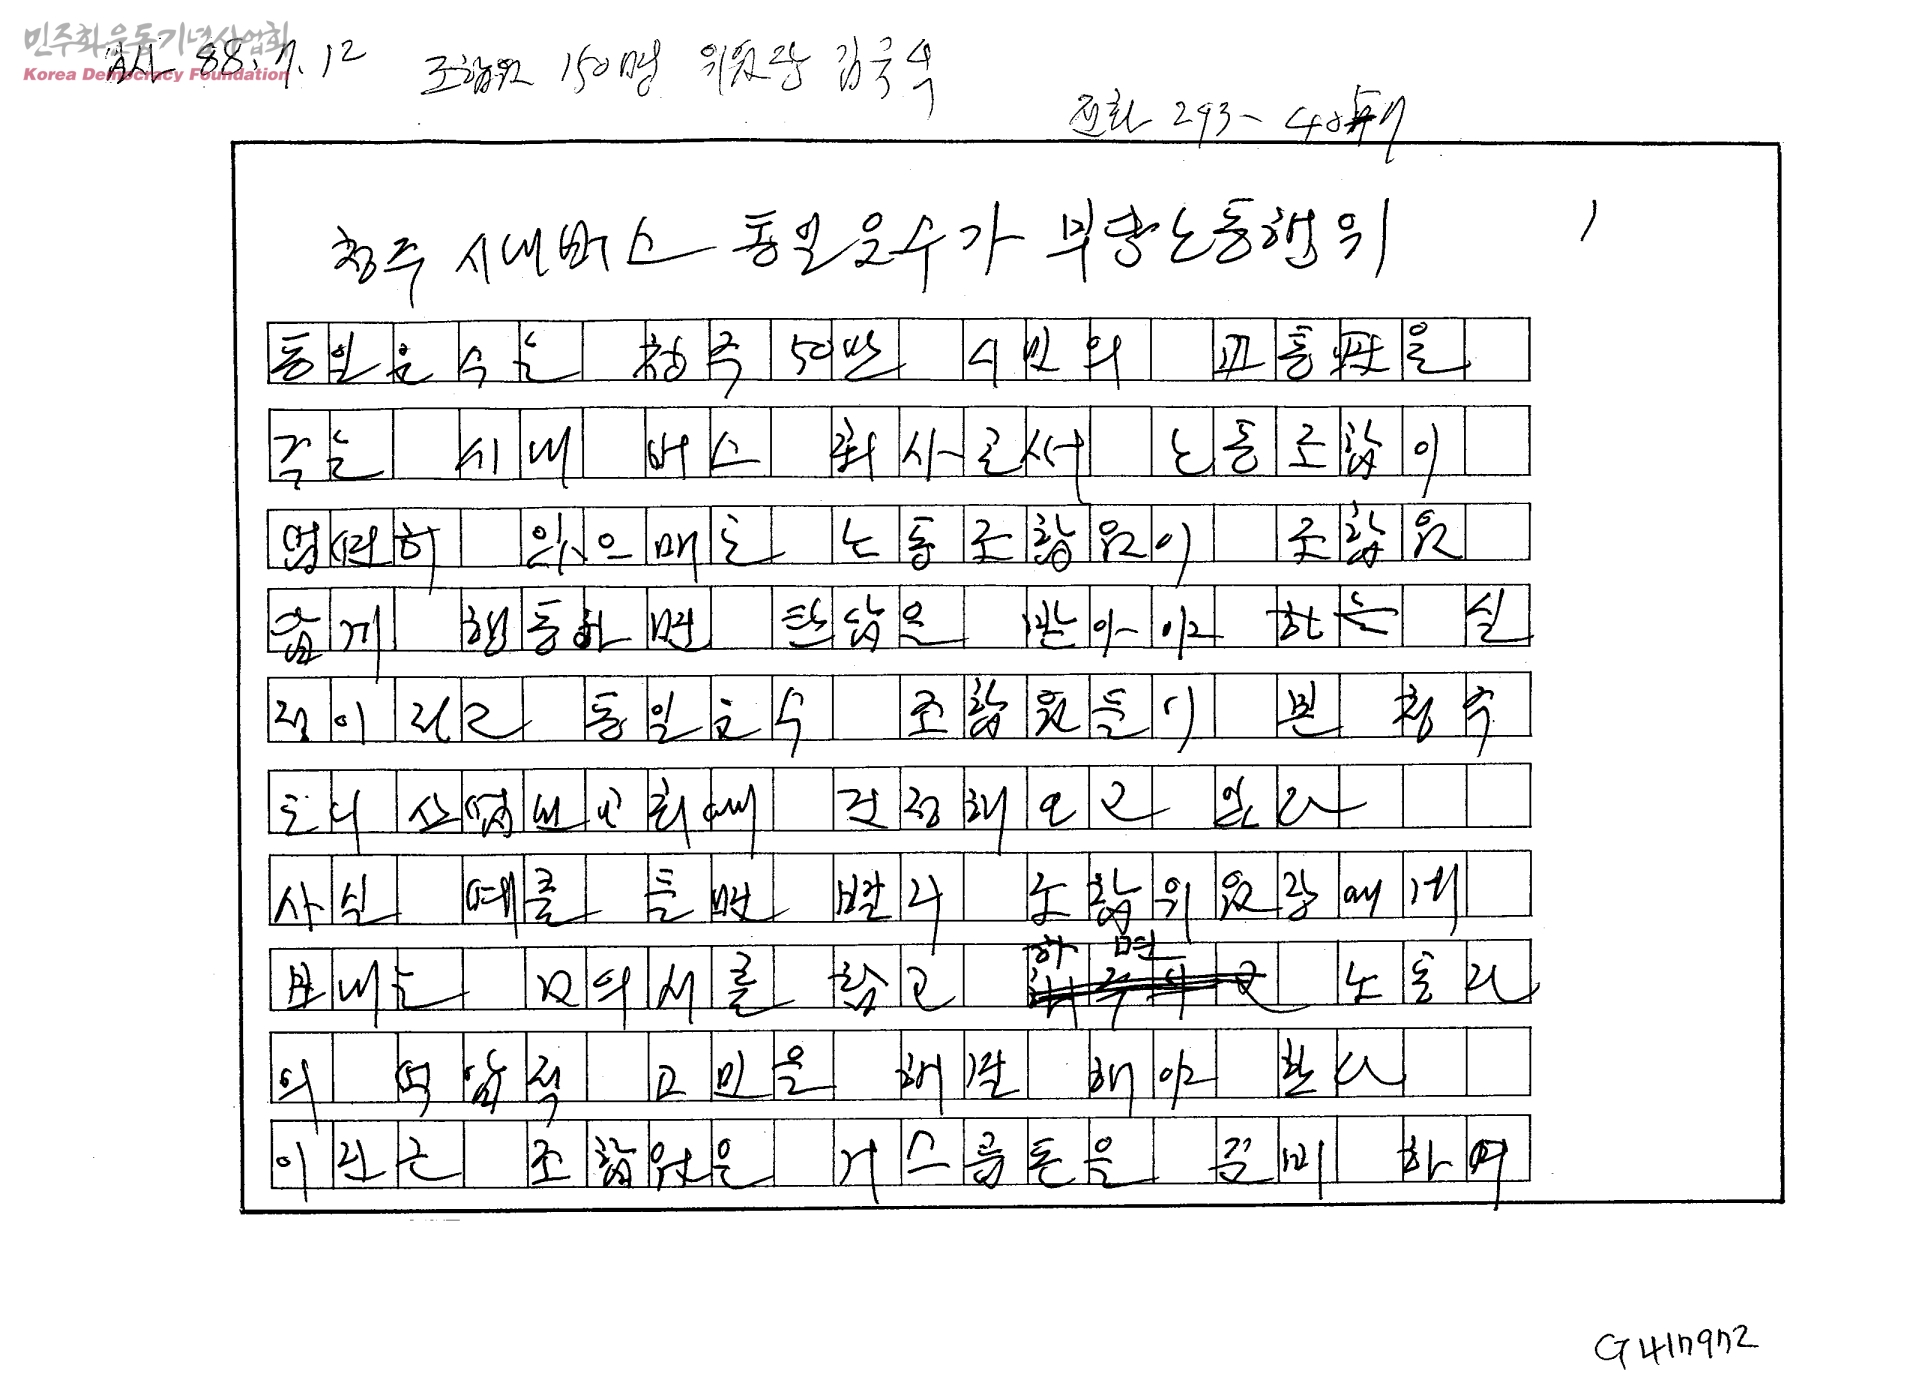 민주화운동기념사업회
Korea Democracy Foundation
88. 7. 12 조합원 150명 위원장 김국석
전화 293-
청주 시내버스 통일운수가 부당노동행위
1
통일운수는 청주 50만 시민의 교통편을
주는 시내 버스 회사로서 노동조합이
엄연히 있으매도 노동조합원이 조합원
답게 행동하면 탄압을 받아야 하는 실
정이라고 통일운수 조합원들이 본 청주
도시산업선교회에 진정해 오고 있다
사실 예를 들면 발리 노합위원장에게
보내는 모의서를 참고 하면 노동자
의 억압적 고민을 해결 해야 한다
이라는 조합원은 거스름돈을 준비 하여
G417972